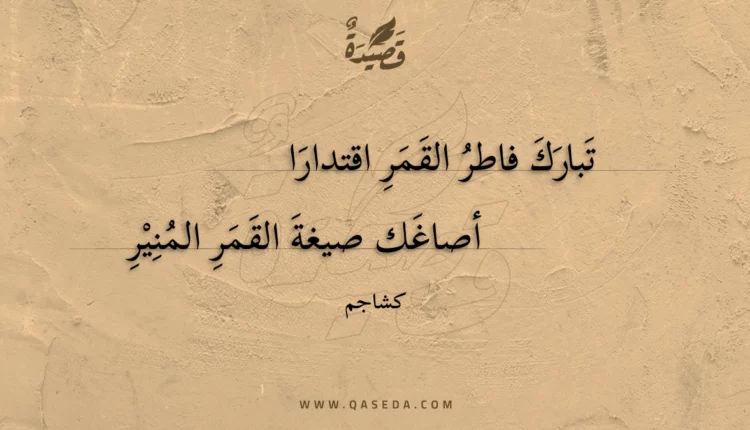 قَصِيدَةٌ
تَبارَكَ فاطرُ القَمَرِ اقتدارَا
أصاغَك صيغةَ القَمَرِ المُنِيْرِ
كشاجم
WWW.QASEDA.COM